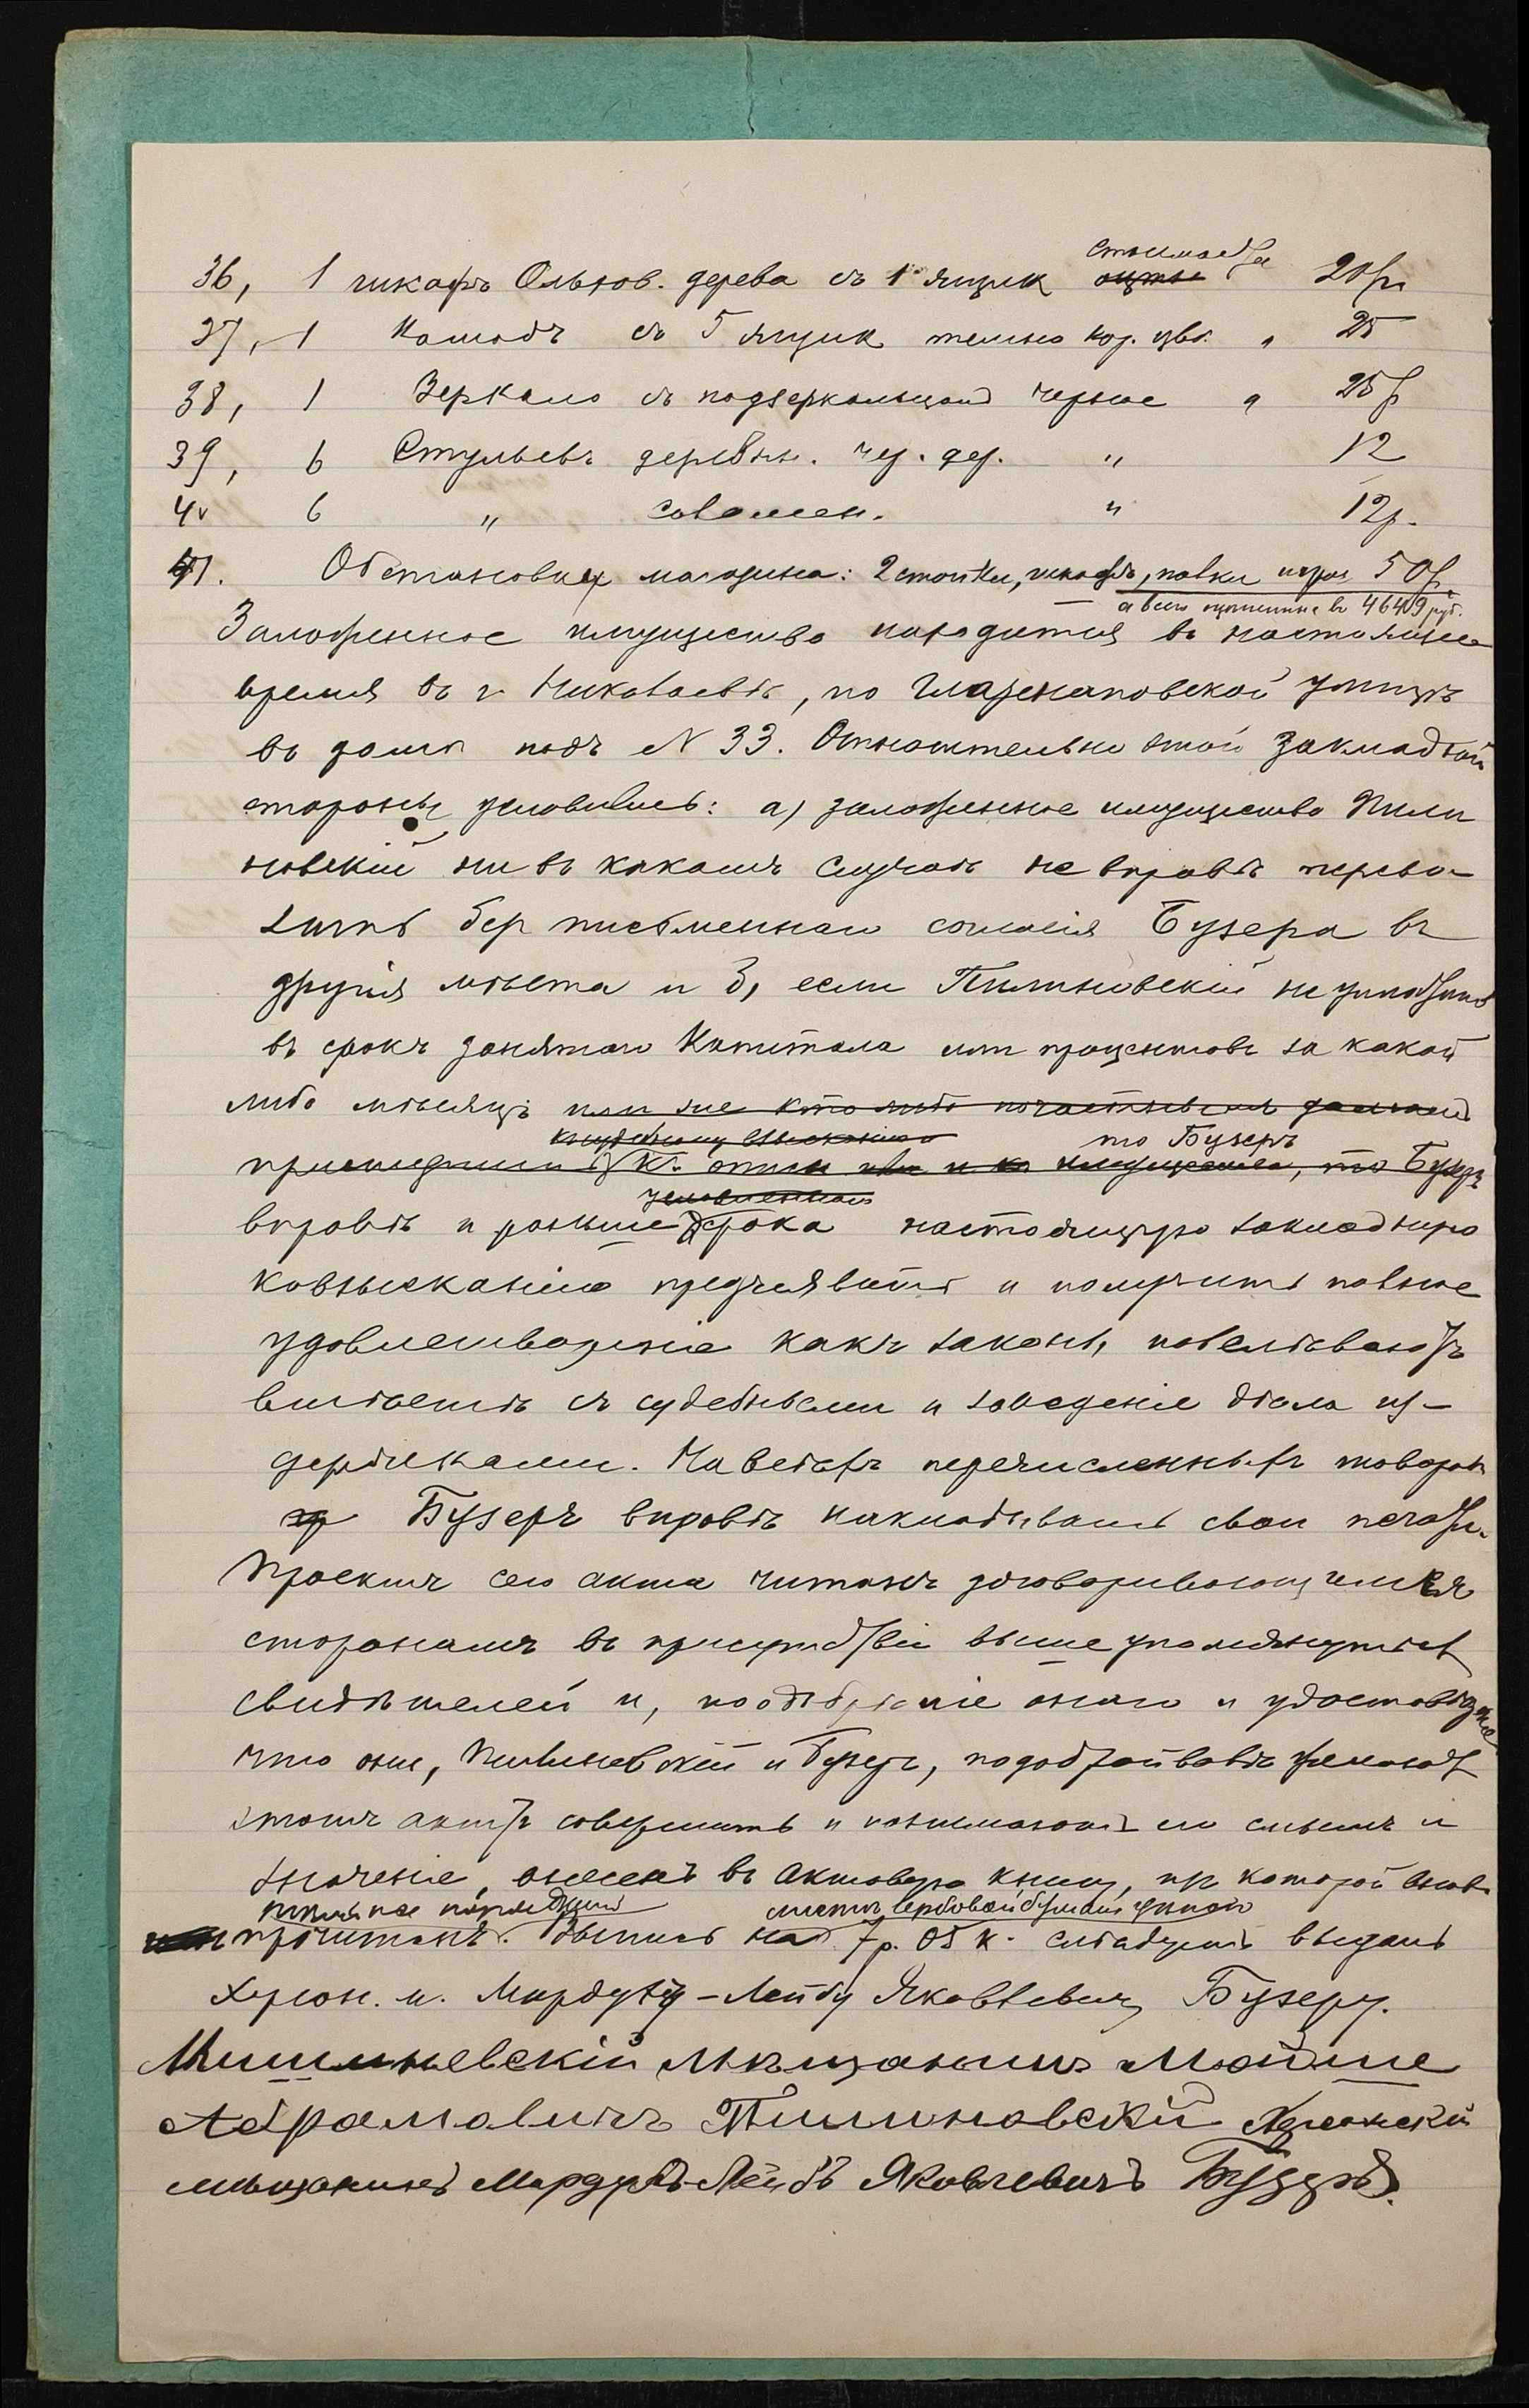 стоимостью
36, 1 шкафъ Ольхов. дерева съ 1 ящик оцѣн 20 р.
37, 1 Комодъ съ 5 ящик темно кор. цвѣ. " 25
38, 1 Зеркало съ подзеркальцемъ черное " 25 р
39, 6 Стульевъ деревян. чер. дер. " 12
40 6 " соломен. " 12 р.
41. Обстановка магазина: 2 стойки, шкафъ, полки 50 р.
а всего оцененные въ 46409 руб.
Заложенное имущество находится въ настоящее
время въ г. Николаевѣ, по Глазенаповской улицѣ
въ домѣ подъ N 33. Относительно этой закладной
стороны условились: а) заложенное имущество Пили
новскій ни въ какомъ случаѣ не вправѣ перево-
зить без письменнаго согласія Бузера въ
другія мѣста и б) если Пилиновскій не уплатитъ
въ срокъ занятаго Капитала или процентовъ за какой
либо мѣсяцъ или же кто либо
къ судебному взысканію то Бузеръ
къ имущества, то Бузеръ
условленнаго
вправѣ и раньше срока настоящую закладную
ко взысканію предъявить и получить полное
удовлетвореніе какъ законы повелѣваютъ
вмѣстѣ съ судебными и за веденіе дѣла из-
держками. На всѣхъ перечисленныхъ товарахъ
Бузеръ вправѣ накладывать свои печати.
Проектъ сего акта читанъ договаривающимся
сторонамъ въ присутствіи выше упомянутыхъ
свидѣтелей и, по одобреніе онаго и удостовѣреніе
что они, Пилиновскій и Бузеръ, по доброй волѣ желаютъ
этотъ актъ совершить и понимаютъ его смыслъ и
значеніе, внесенъ въ Актовую книгу, изъ которой вновь
листъ гербовой бумаги цѣною
прочитанъ. Выпись на 7 р. 05 к. слѣдуетъ выдать
Херсон. м. Мордуху-Лейбу Яковлевичу Бузеру.
Кишиневскій мѣщанинъ Мойше
Абрамовичъ Пилиновскій Херсонскій
мѣщанинъ Мордухъ-Лейбъ Яковлевичъ Бузеръ.